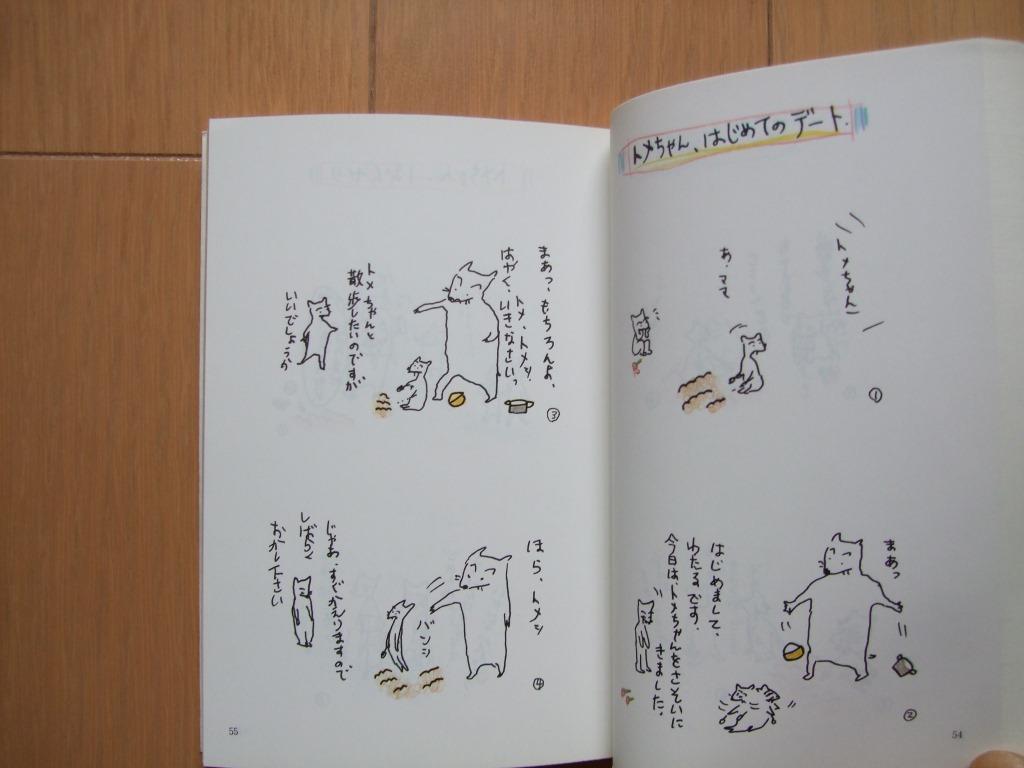 トメちゃん、はじめてのデート.
トメちゃん
あ、ママ
①
まあっ
はじめまして、
わたるです.
今日は、トメちゃんをさそいに
きました、
②
54
まあっ、もちろんよ、
はやく、いきなさいっ
トメ、トメッ
トメちゃんと
散歩したいのですが
いいでしょうか
③
ほら、トメッ
バンッ
じゃあ、すぐかえりますので
しばらく
おかし下さい
④
55